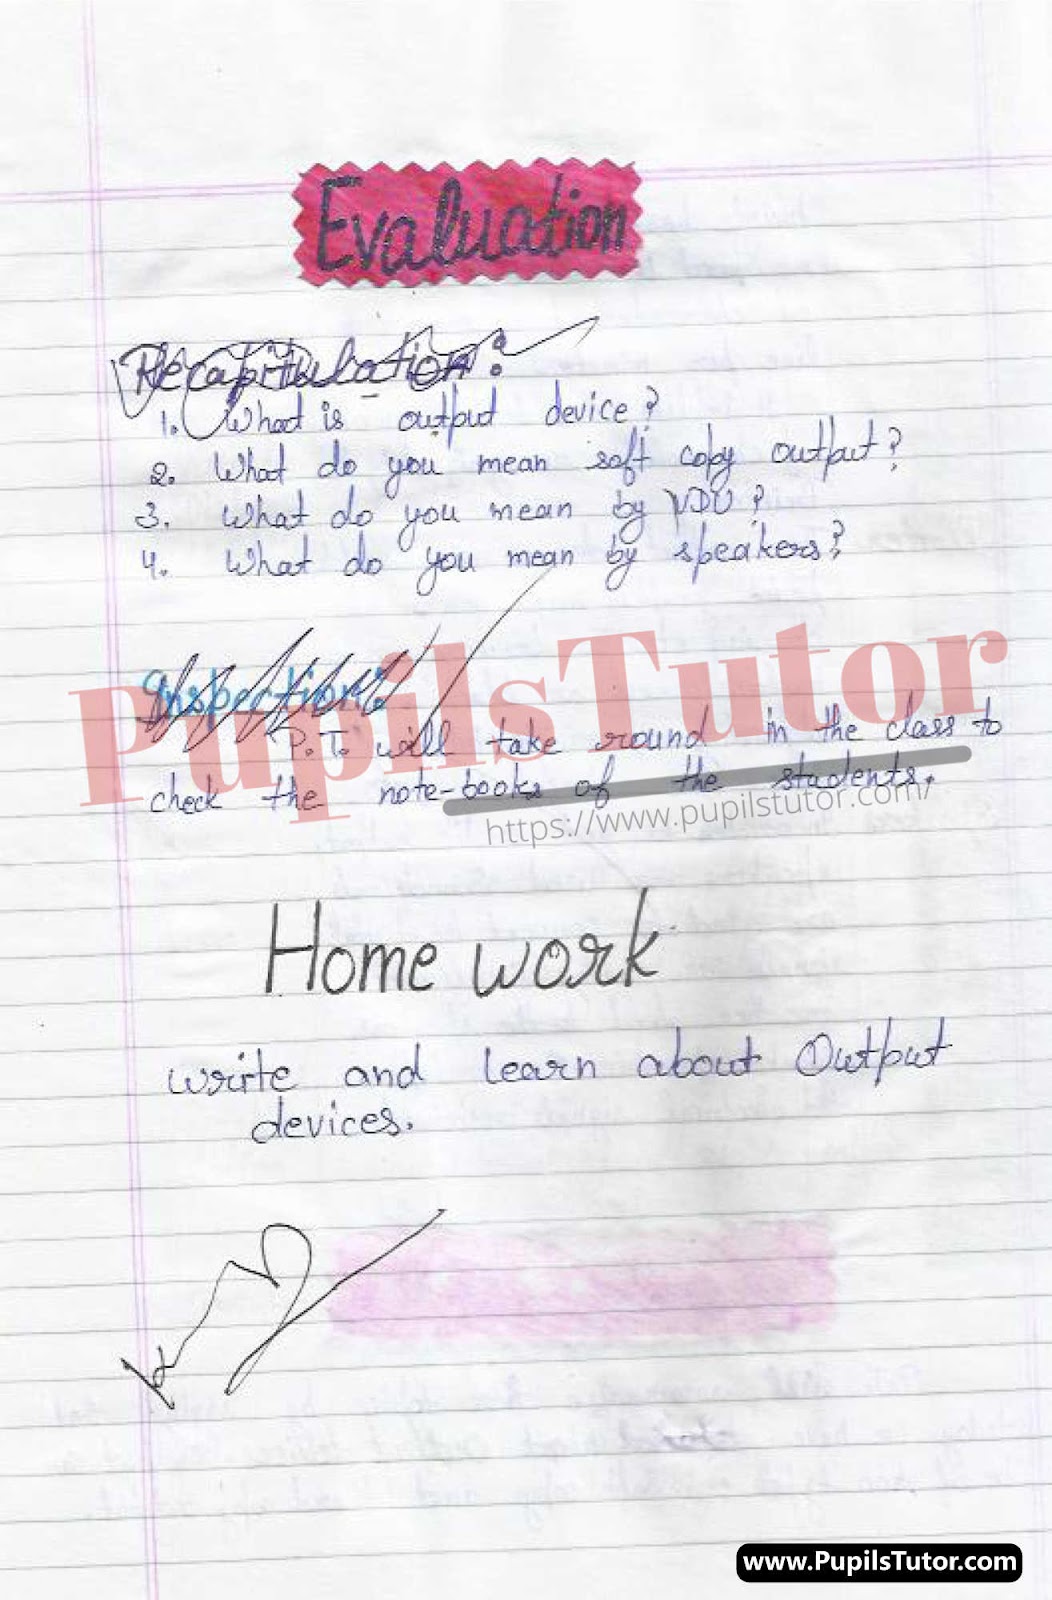 Evaluation
Recapitulation:
1. What is output device?
2. What do you mean soft copy output?
3. What do you mean by VDU?
4. What do you mean by speakers?
Inspection:
P.T. will take round in the class to
check the note-books of the students.
PupilsTutor
https://www.pupilstutor.com/
Home work
write and learn about Output
devices.
www.PupilsTutor.com